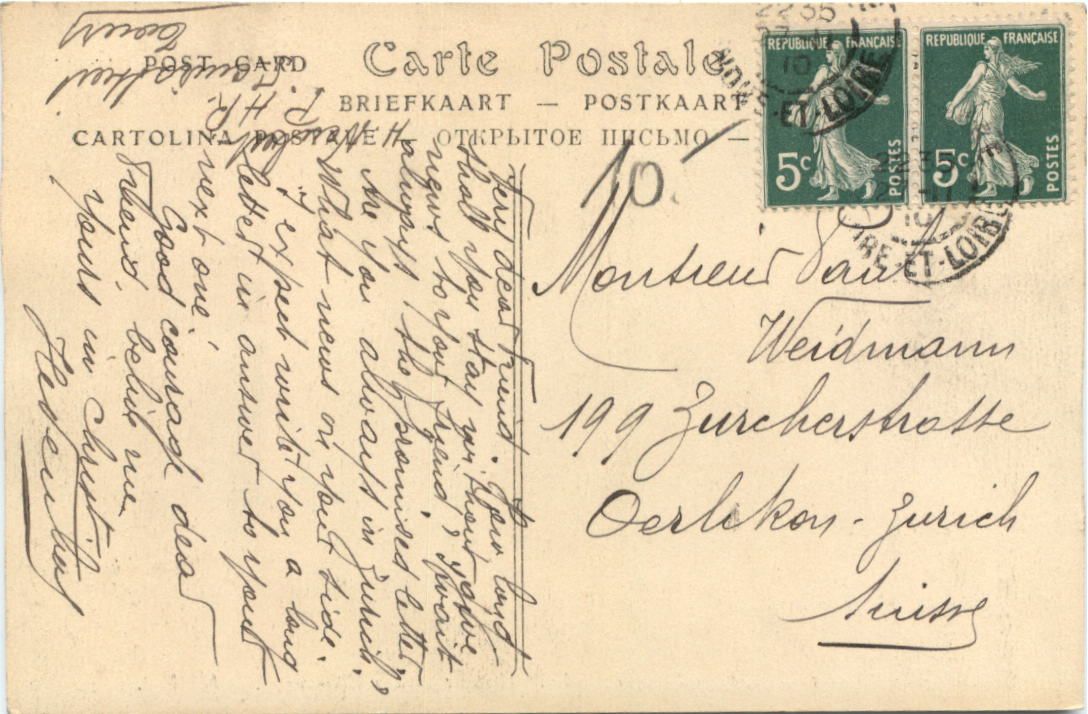 POST CARD Carte Postale
BRIEFKAART — POSTKAART
CARTOLINA POSTALE — ОТКРЫТОЕ ПИСЬМО —
REPUBLIQUE FRANÇAISE
5c
POSTES
REPUBLIQUE FRANÇAISE
5c
POSTES
22 35
10
INDRE-ET-LOIRE
10
INDRE-ET-LOIRE
10.
Monsieur Paul
Weidmann
199 Zurcherstrasse
Oerlikon - Zurich
Suisse
Tours
H. R.
P. R.
Very dear friend. How long
shall you stay without give
news to your friend? I wait
always the promised letter,
Are you always in Zurich?
What news on your side.
I expect write you a long
letter in answer to your
next one.
Good courage dear
friend, believe me
yours in christ